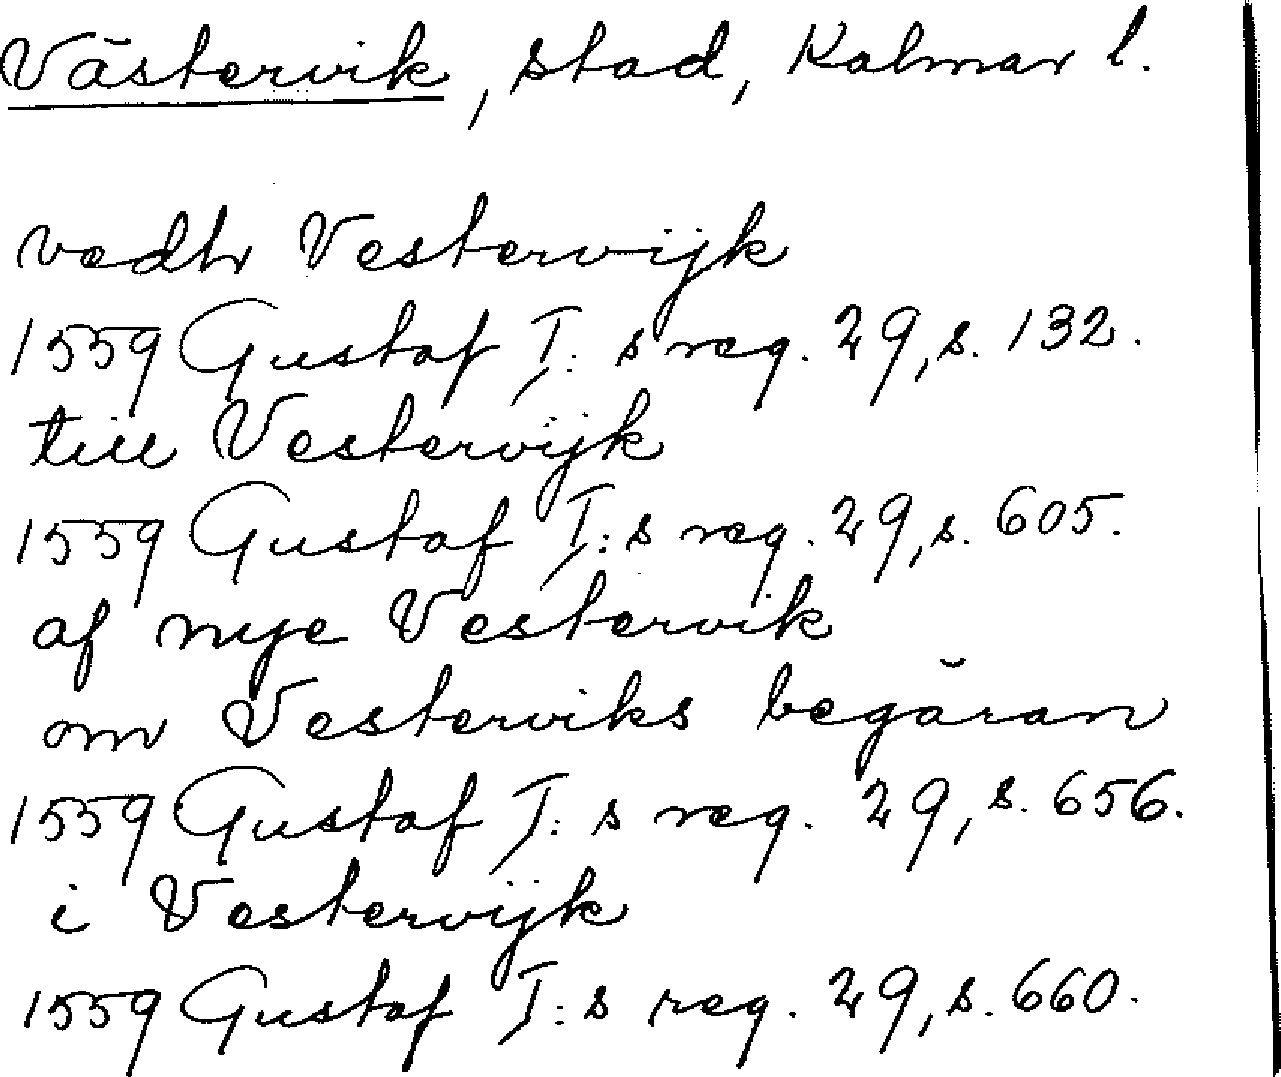 Västervik, stad, Kalmar l.
vedh Vesterwijk
1559 Gustaf I:s reg. 29, s. 132.
till Vestervijk
1559 Gustaf I:s reg. 29, s. 605.
af nye Vestervik
om Vesterviks begäran
1559 Gustaf I:s reg. 29, s. 656.
i Vestervijk
1559 Gustaf I:s reg. 29, s. 660.